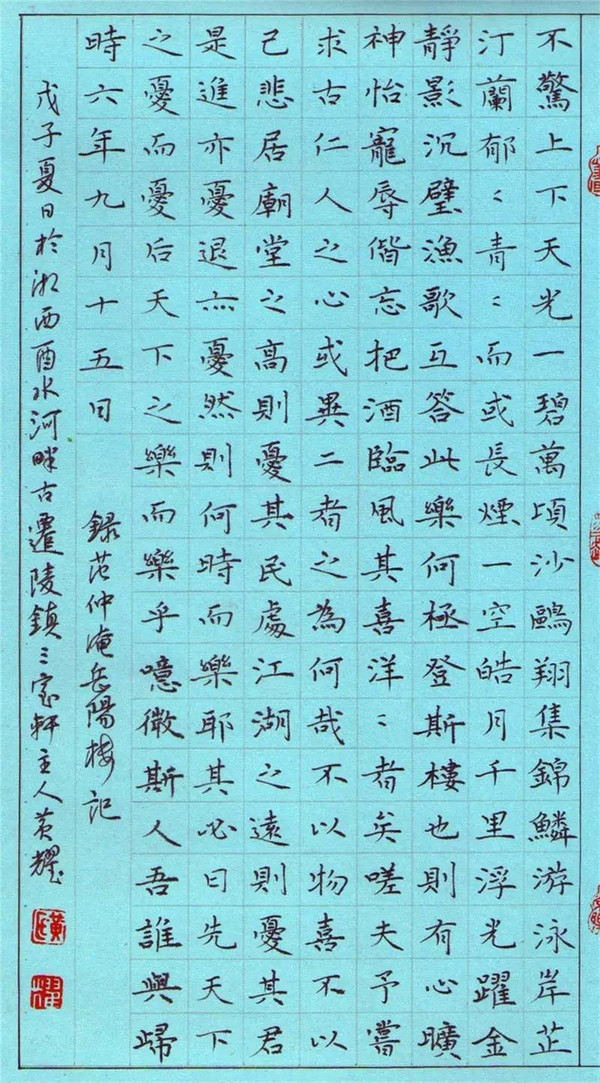 不驚上下天光一碧萬頃沙鷗翔集錦鱗游泳岸芷
汀蘭郁〻青〻而或長煙一空皓月千里浮光躍金
靜影沉璧漁歌互答此樂何極登斯樓也則有心曠
神怡寵辱偕忘把酒臨風其喜洋〻者矣嗟夫予嘗
求古仁人之心或異二者之為何哉不以物喜不以
己悲居廟堂之高則憂其民處江湖之遠則憂其君
是進亦憂退亦憂然則何時而樂耶其必曰先天下
之憂而憂后天下之樂而樂乎噫微斯人吾誰與歸
時六年九月十五日
錄范仲淹岳陽樓記
戊子夏日於湘西酉水河畔古遷陵鎮三宝軒主人黃耀